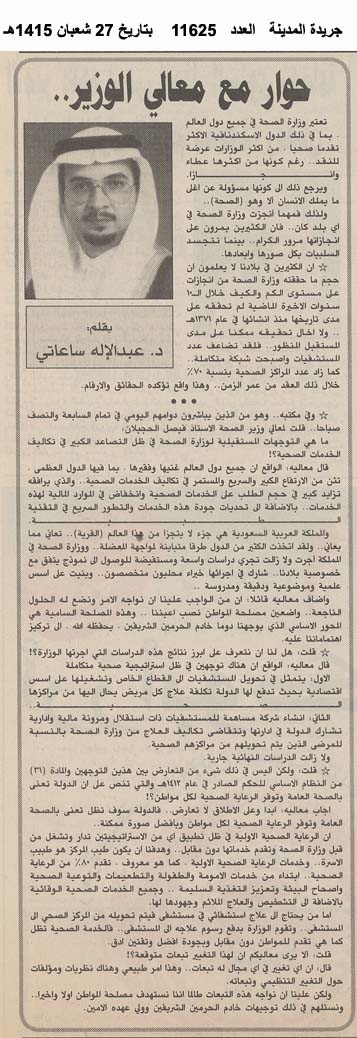 جريدة المدينة العدد 11625 بتاريخ 27 شعبان 1415هـ
حوار مع معالي الوزير..
تعتبر وزارة الصحة في جميع دول العالم
.. بما في ذلك الدول الاسكندنافية الاكثر
تقدما صحيا . من اكثر الوزارات عرضة
للنقد.. رغم كونها من اكثرها عطاء
وانجازا.
ويرجع ذلك الى كونها مسؤولة عن اغلى
ما يملك الانسان ألا وهو (الصحة)..
ولذلك فمهما انجزت وزارة الصحة في
اي بلد كان.. فان الكثيرين يمرون على
انجازاتها مرور الكرام.. بينما تتجسد
السلبيات بكل صورها وابعادها.
☆ ان الكثيرين في بلادنا لا يعلمون ان
حجم ما حققته وزارة الصحة من انجازات
على مستوى الكم والكيف خلال الـ١٠
سنوات الاخيرة الماضية لم تحققه على
مدى تاريخها منذ انشائها في عام ١٣٧١هـ
.. ولا اخال تحقيقه ممكنا على مدى
المستقبل المنظور.. فلقد تضاعف عدد
المستشفيات واصبحت شبكة متكاملة..
كما زاد عدد المراكز الصحية بنسبة ٧٠٪
خلال ذلك العقد من عمر الزمن.. وهذا واقع تؤكده الحقائق والارقام.
بقلم:
د. عبدالإله ساعاتي
● ● ●
☆ وفي مكتبه.. وهو من الذين يباشرون دوامهم اليومي في تمام السابعة والنصف
صباحا.. قلت لمعالي وزير الصحة الاستاذ فيصل الحجيلان:
ما هي التوجهات المستقبلية لوزارة الصحة في ظل التصاعد الكبير في تكاليف
الخدمات الصحية؟!
قال معاليه: الواقع ان جميع دول العالم غنيها وفقيرها . بما فيها الدول العظمى .
تئن من الارتفاع الكبير والسريع والمستمر في تكاليف الخدمات الصحية.. والذي يرافقه
تزايد كبير في حجم الطلب على الخدمات الصحية وانخفاض في الموارد المالية لهذه
الخدمات.. بالاضافة الى تحديات جودة هذه الخدمات والتطور السريع في التقنية
الطبية.
والمملكة العربية السعودية هي جزء لا يتجزأ من هذا العالم (القرية).. تعاني مما
يعاني.. ولقد اتخذت الكثير من الدول طرقا متباينة لمواجهة المعضلة.. ووزارة الصحة في
المملكة أجرت ولا زالت تجري دراسات واسعة ومستفيضة للوصول الى نموذج يتفق مع
خصوصية بلادنا.. شارك في اجرائها خبراء محليون متخصصون.. وبنيت على اسس
علمية وموضوعية ودقيقة ومدروسة..
واضاف معاليه قائلا: ان من الواجب علينا ان نواجه الامر ونضع له الحلول
الناجعة.. واضعين مصلحة المواطن نصب اعيننا .. وهذه المصلحة السامية هي
المحور الاساسي الذي يوجهنا دوما خادم الحرمين الشريفين . يحفظه الله . الى تركيز
اهتماماتنا عليه.
☆ قلت: هل لنا ان نتعرف على ابرز نتائج هذه الدراسات التي اجرتها الوزارة؟!
قال معاليه: الواقع ان هناك توجهين في ظل استراتيجية صحية متكاملة
الاول: يتمثل في تحويل المستشفيات الى القطاع الخاص وتشغيلها على اسس
اقتصادية بحيث تدفع لها الدولة تكلفة علاج كل مريض يحال اليها من مراكزها
الصحية..
الثاني: انشاء شركة مساهمة للمستشفيات ذات استقلال ومرونة مالية وادارية
تشارك الدولة في ادارتها وتتقاضى تكاليف العلاج من وزارة الصحة بالنسبة
للمرضى الذين يتم تحويلهم من مراكزهم الصحية.
ولا زالت الدراسات النهائية جارية.
☆ قلت: ولكن أليس في ذلك شيء من التعارض بين هذين التوجهين والمادة (٣١)
من النظام الاساسي للحكم الصادر في عام ١٤١٢هـ والتي تنص على ان الدولة تعنى
بالصحة العامة وتوفر الرعاية الصحية لكل مواطن؟!
اجاب معاليه: ابدا وعلى الاطلاق لا تعارض.. فالدولة سوف تظل تعنى بالصحة
العامة وتوفر الرعاية الصحية لكل مواطن وبافضل صورة ممكنة..
ان الرعاية الصحية الاولية في ظل تطبيق اي من الاستراتيجيتين تدار وتشغل من
قبل وزارة الصحة وتقدم خدماتها دون مقابل.. وهدفنا ان يكون طبيب المركز هو طبيب
الاسرة.. وخدمات الرعاية الصحية الاولية . كما هو معروف . تقدم ٨٠٪ من الرعاية
الصحية.. ابتداء من خدمات الامومة والطفولة والتطعيمات والتوعية الصحية
واصحاح البيئة وتعزيز التغذية السليمة .. وجميع الخدمات الصحية الوقائية
بالاضافة الى التشخيص والعلاج الملائم وجهودها لها.
اما من يحتاج الى علاج استشفائي في مستشفى فيتم تحويله من المركز الصحي الى
المستشفى.. وتقوم الوزارة بدفع رسوم علاجه الى المستشفى.. فالخدمة الصحية تظل
كما هي تقدم للمواطن دون مقابل وبجودة افضل وتقنين ادق.
قلت: ألا يرى معاليكم ان لهذا التغيير تبعات متوقعة؟!
قال: ان اي تغيير في اي مجال له تبعات.. وهذا امر طبيعي وهناك نظريات ومؤلفات
حول التغيير التنظيمي وتبعاته.
ولكن علينا ان نواجه هذه التبعات طالما اننا نستهدف مصلحة المواطن اولا واخيرا..
ونستلهم في ذلك توجيهات خادم الحرمين الشريفين وولي عهده الامين.